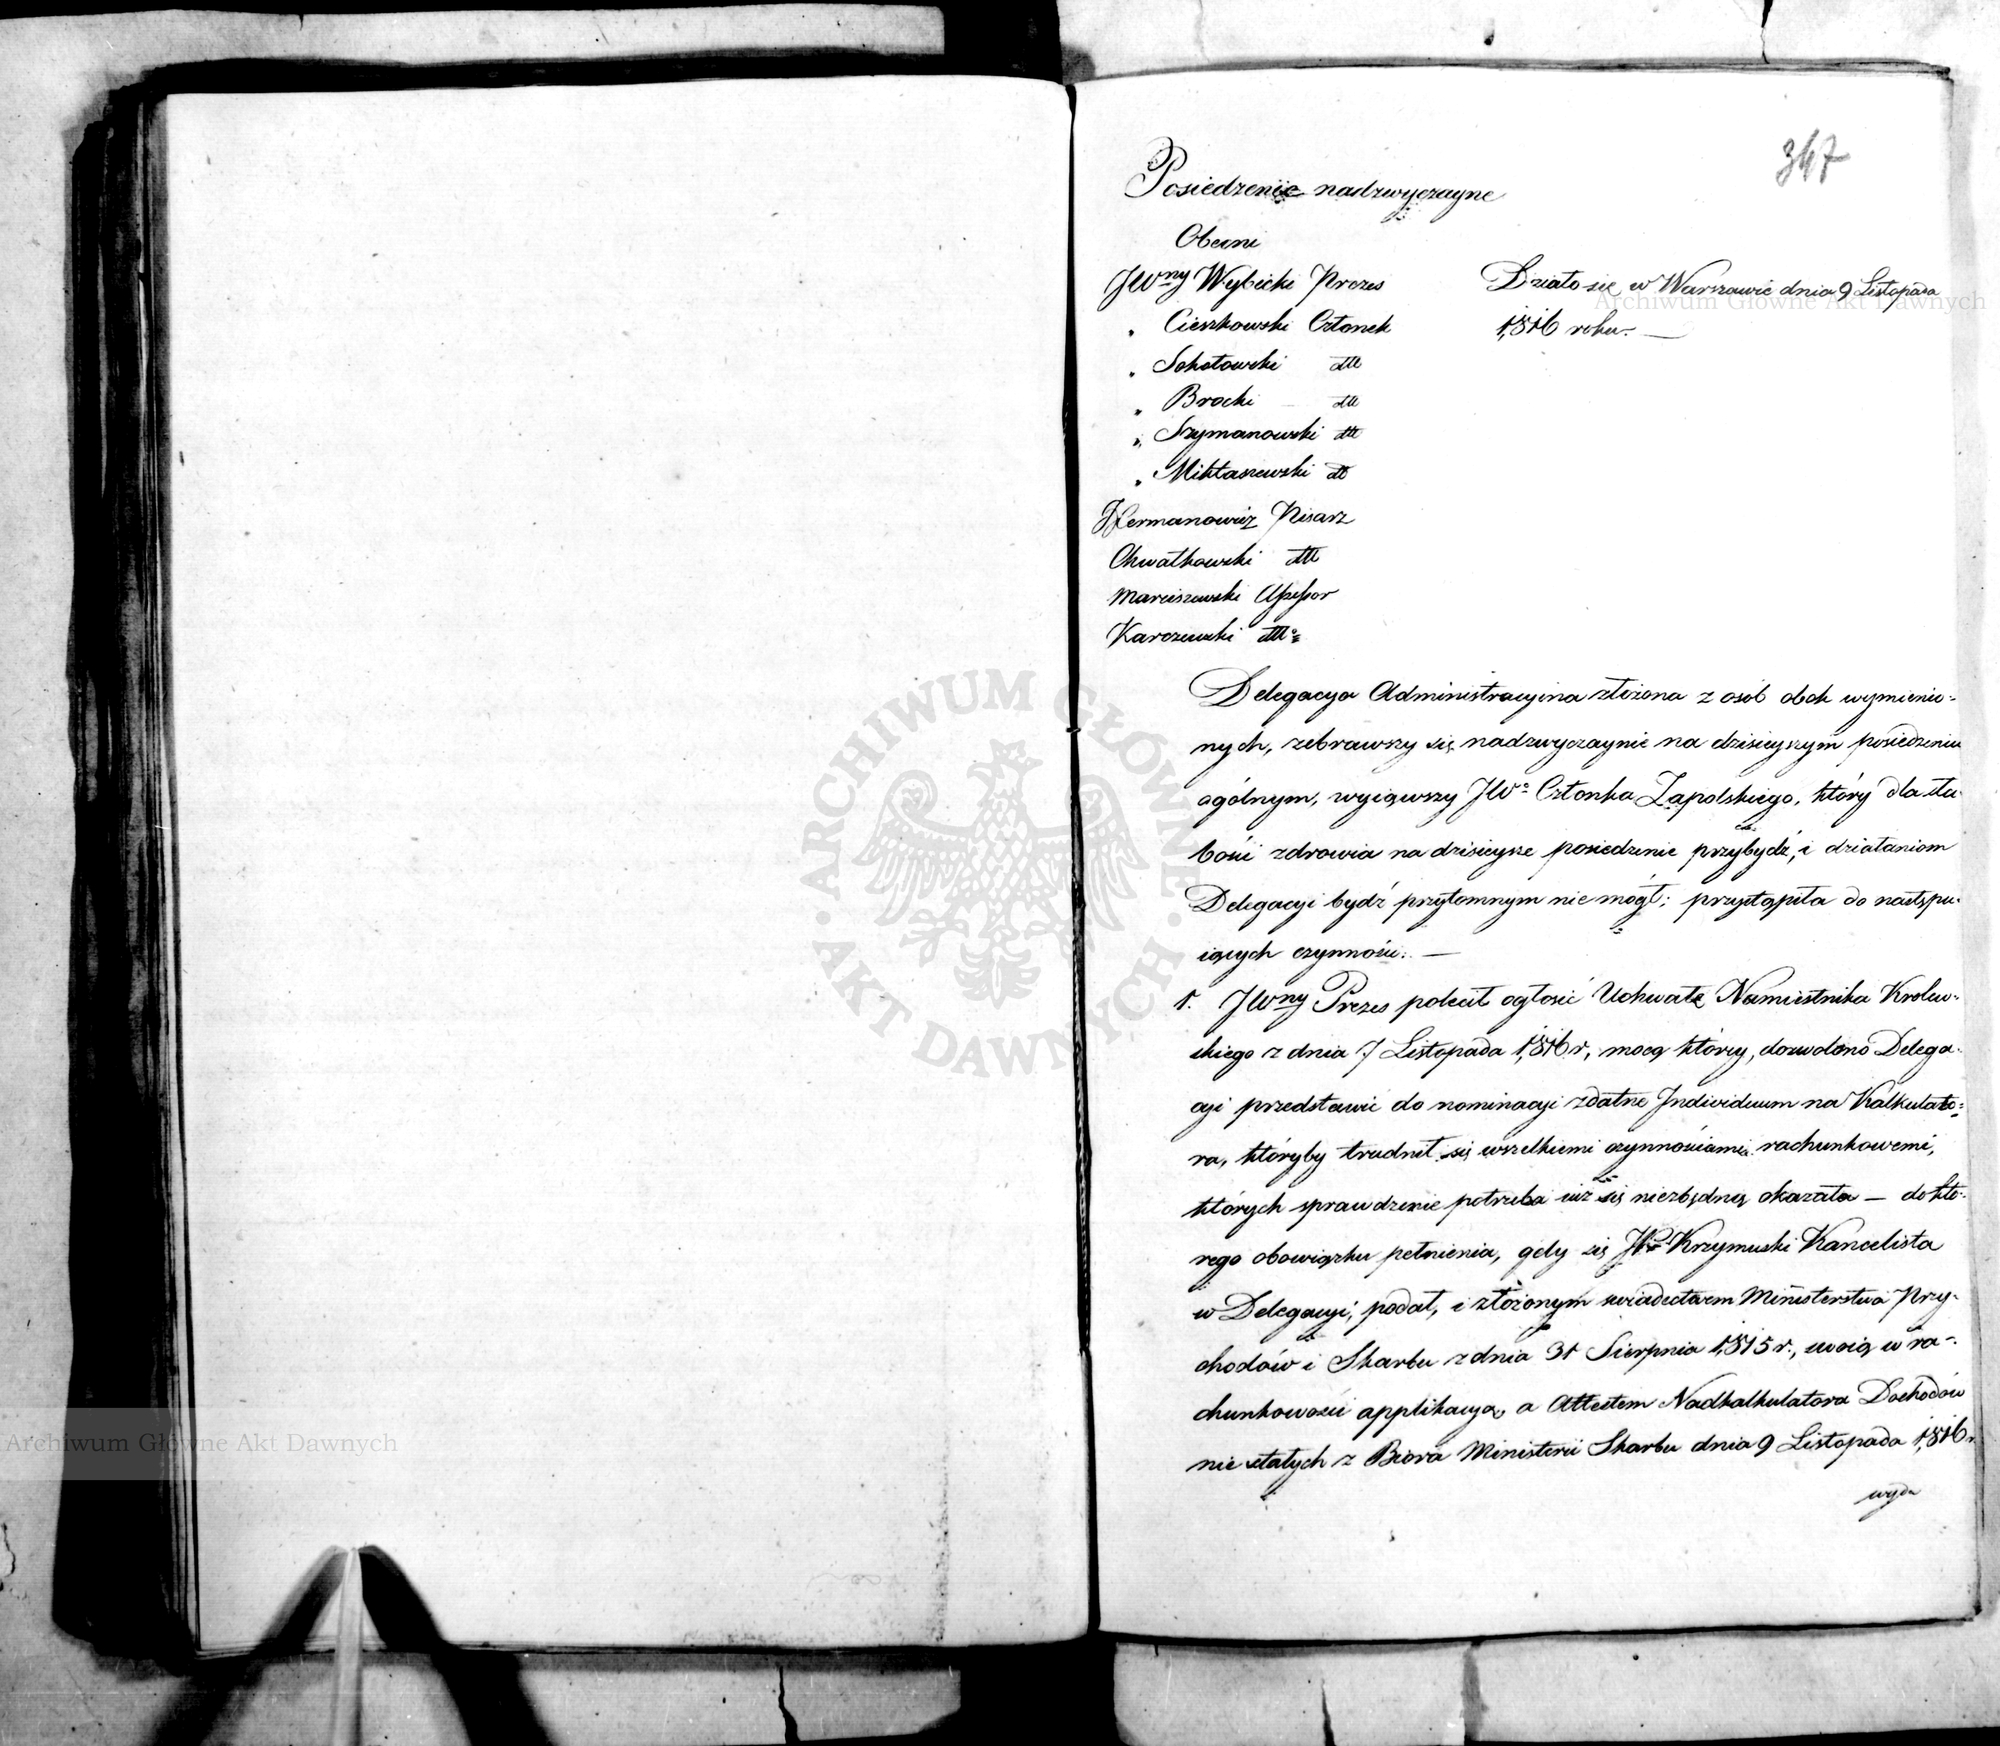 347
Posiedzenie nadzwyczayne
Obecni
JWny Wybicki Prezes
Działo się w Warszawie dnia 9 Listopada
1816 roku. —
" Cieszkowski Członek
" Sokołowski dtt
" Brocki — dtt
" Szymanowski dtt
" Mikłaszewski dtt
Hermanowicz Pisarz
Chwałkowski dtt
Marciszewski Assessor
Karczewski dtto
Delegacya Administracyina złożona z osób obok wymienio-
nych, zebrawszy się nadzwyczaynie na dzisieyszym posiedzeniu
ogólnym, wyiąwszy JWo Członka Zapolskiego, który dla sła-
bości zdrowia na dzisieysze posiedzenie przybydź, i działaniom
Delegacyi bydź przytomnym nie mógł; przystąpiła do nastypu-
iących czynności. —
1. JWny Prezes polecił ogłosić Uchwałę Namiestnika Krolew-
skiego z dnia 7 Listopada 1816 r, mocą którey, dozwolono Delega-
cyi przedstawić do nominacyi zdatne Individuum na Kalkulato-
ra, któryby trudnił się wszelkiemi czynnościami rachunkowemi,
których sprawdzenie potrzeba iuż się niezbędną okazała — do któ-
rego obowiązku pełnienia, gdy się JP Krzymuski Kancelista
w Delegacyi, podał, i złożonym swiadectwem Ministerstwa Przy-
chodów i Skarbu z dnia 31 Sierpnia 1815 r., swoią w ra-
chunkowości applikacyą, a Attestem Nadkalkulatora Dochodów
nie stałych z Biora Ministerii Skarbu dnia 9 Listopada 1816 r
wyda
Archiwum Główne Akt Dawnych
ARCHIWUM GŁÓWNE AKT DAWNYCH
Archiwum Główne Akt Dawnych